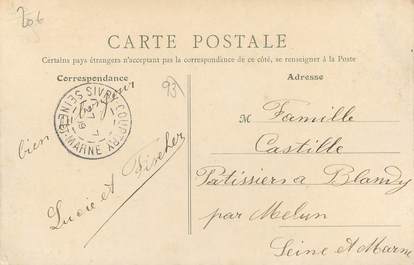 206
CARTE POSTALE
Certains pays étrangers n'acceptant pas la correspondance de ce côté, se renseigner à la Poste
Correspondance
Adresse
93
SIVRY-COURTRY
SEINE-ET-MARNE
bien
Lucie et Fischer
M Famille
Castille
Patissiers a Blandy
par Melun
Seine et Marne